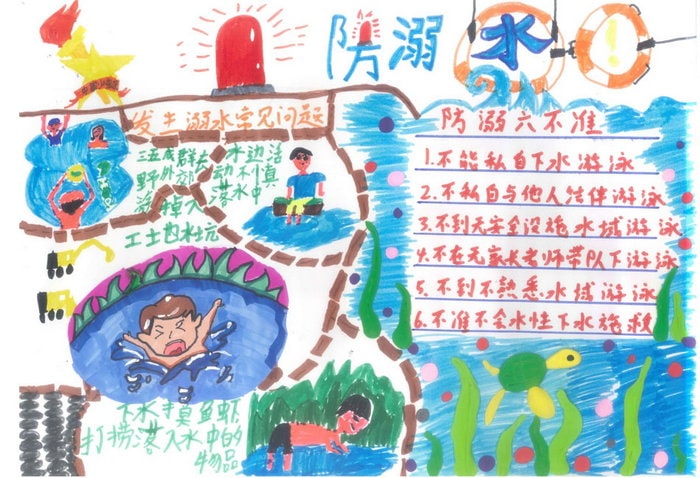 防溺水!
发生溺水常见问题
三五成群去
野外郊
游
掉入
工土包水坑
水边活
动不慎
落水中
下水摸鱼虾
打捞落入水中的
物品
防溺六不准
1.不能私自下水游泳
2.不私自与他人结伴游泳
3.不到无安全设施水域游泳
4.不在无家长老师带队下游泳
5.不到不熟悉水域游泳
6.不准不会水性下水施救